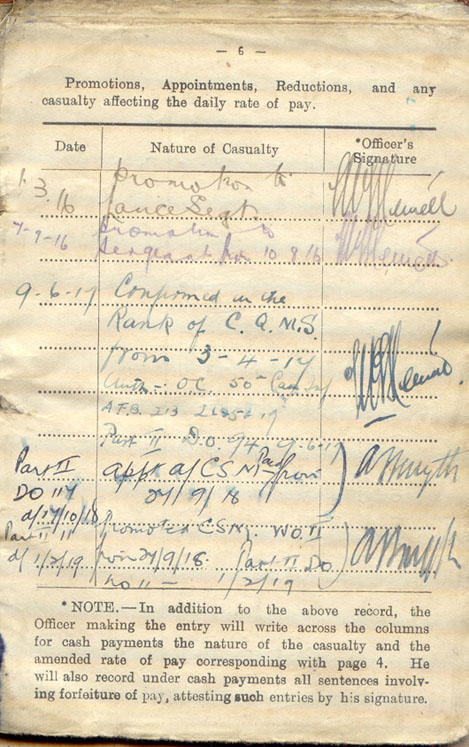 — 6 —
Promotions, Appointments, Reductions, and any
casualty affecting the daily rate of pay.
Date Nature of Casualty *Officer's Signature
1.3.16 promotion to
Lance Segt.
7-9-16 promotion to
Sergeant from 10 8 16
9-6-17 Confirmed in the
Rank of C. Q. M. S.
from 3-4-17
Auth - O.C. 50
A.F.B. 213
Part II D.O. 94
Part II appt a/CSM Paid from
DO 117 27/9/18
d/17/10/18
Part II 11 Promoted CSM. WO.II
d/ 1/2/19 from 27/9/18. Part II DO
no 11 - 1/2/19
* NOTE.—In addition to the above record, the
Officer making the entry will write across the columns
for cash payments the nature of the casualty and the
amended rate of pay corresponding with page 4. He
will also record under cash payments all sentences involv-
ing forfeiture of pay, attesting such entries by his signature.